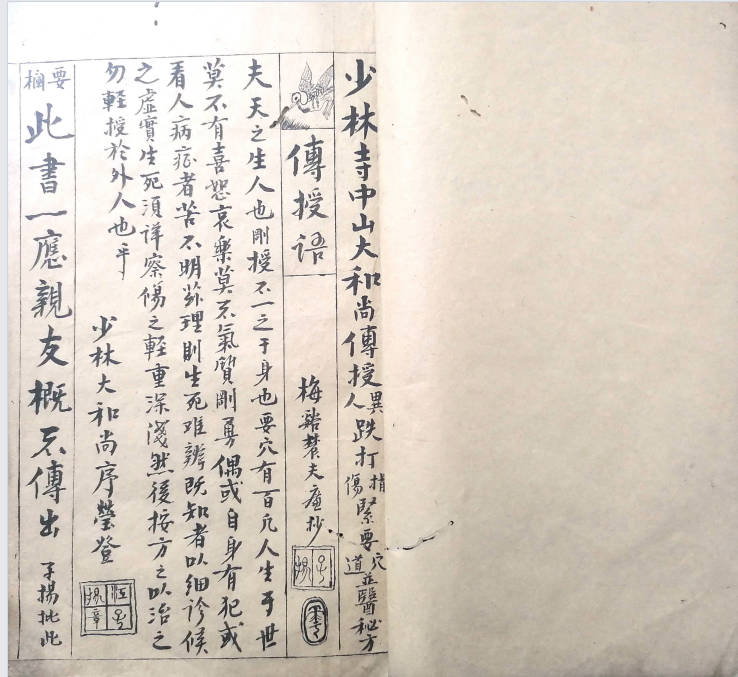 少林寺中山大和尚傳授異人跌打傷緊要穴道並醫秘方
傳授語
梅谿夫抄
夫天之生人也剛授不一之于身也要穴有百凢人生于世
莫不有喜怒哀樂莫不氣質剛勇偶或自身有犯或
看人病症者苦不明於理則生死难辨既知者以细診候
之虛實生死須詳察傷之輕重深淺然後按方之以治之
勿輕授於外人也乎
少林大和尚序瑩登
江子揚章
要
此書一應親友概不傳出 子揚批此